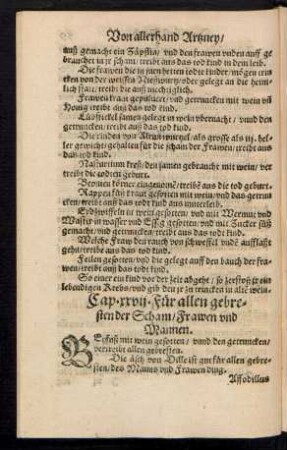 Von allerhand Artzney/
auß gemacht ein Zäpflin/ vnd den frawen vnden auff ge
brauchet in jr scham/ treibt auß das tod kind in dem leib.
Die frawen die in jnen hetten todte kinder/ mögen trin
cken von der weissen Nießwurtz/ oder gelegt an die heim
lich statt/ treibt die auß mechtiglich.
Frawen kraut gepuluert/ vnd getruncken mit wein vñ
Honig treibt auß das tod kind.
samen gelegt in wein vbernacht/ vnnd den
getruncken/ treibt auß das tod kind.
Die rinden von wurtzel/ als grosse als iij. hel-
ler gewicht/ gehalten für die scham der Frawen/ treibt auß
das tod kind.
Nasturtium kreß/ den samen gebraucht mit wein/ ver
treibt die todten geburt.
körner eingenomē/ treibt auß die tod geburt.
Rappen fůß kraut gesotten mit wein/ vnd das getrun
cken/ treibt auß das tod kind auß mutterleib.
Erdzwiffeln in wein gesotten/ vnd mit
vnd mit Zucker süß
gemacht/ vnd getruncken/ treibt auß das todt kind.
Welche Fraw den rauch von schweffel vnden aufflaßt
gehn/ treibt auß das todt kind.
Feilen gesotten/ vnd die gelegt auff den bauch der fra
wen/ treibt auß das todt kind.
So einer ein kind vor der zeit abgeht/ so zerstoß jr ein
lebendigen Krebs/ vnd gib den jr zu trincken in alte wein.
Cap. xxvij. Für allen gebre-
sten der Scham/ Frawen vnd
Mannen.
mit wein gesotten/ vnnd den getruncken/
vertreibt allen gebresten.
Die äsch von Dille ist gut für allen gebre-
sten/ des Manns vnd Frawen ding.
Affodillus